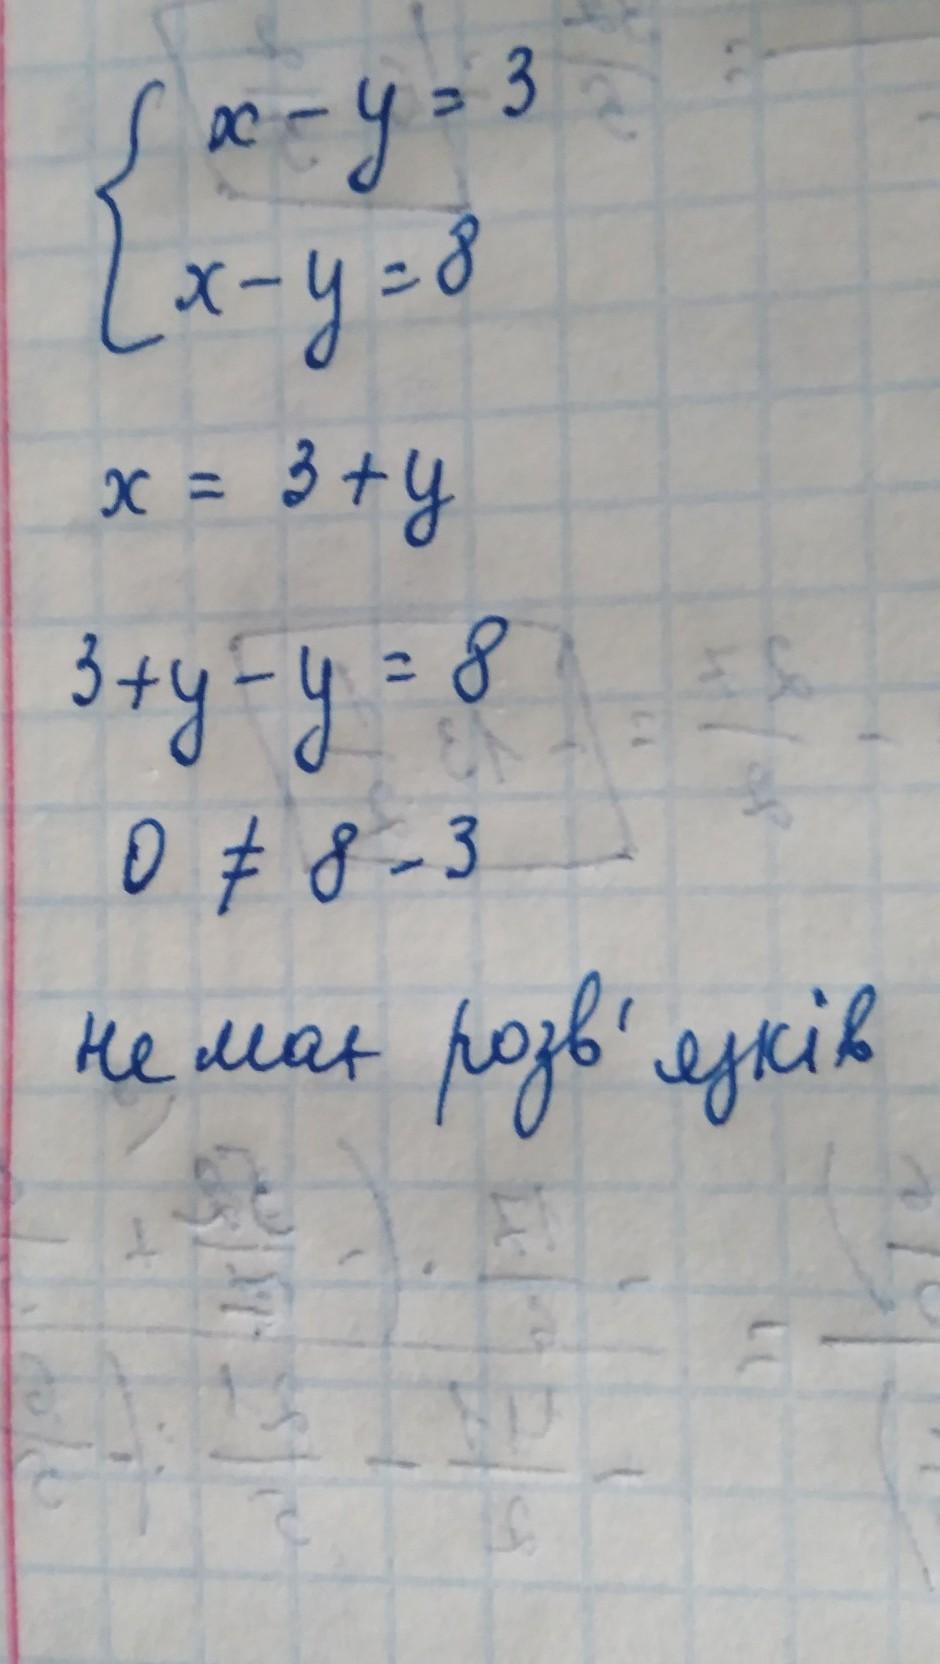 x - y = 3
x - y = 8
x = 3 + y
3 + y - y = 8
0 ≠ 8 - 3
немає розв'язків